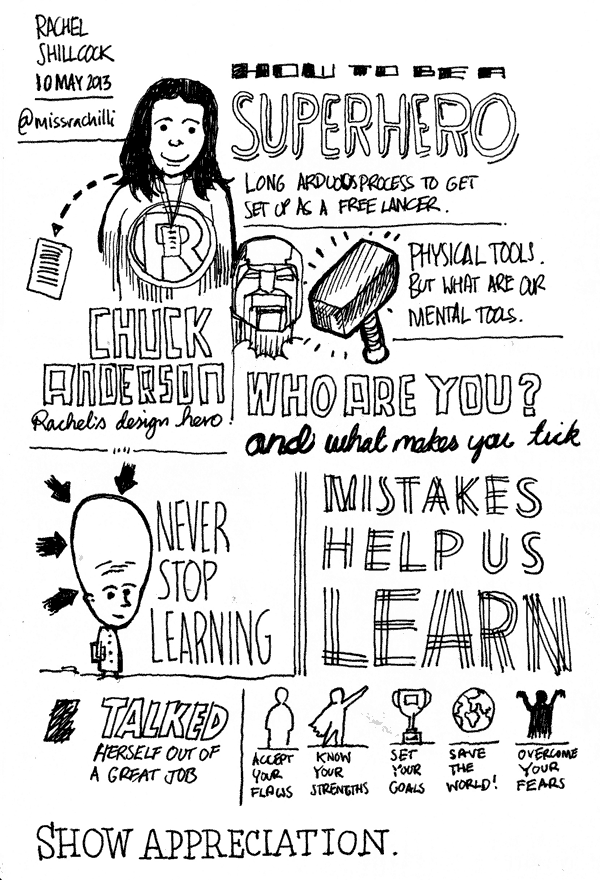 RACHEL
SHILLCOCK
10 MAY 2013
@missrachilli
HOW TO BE A
SUPERHERO
LONG ARDUOUS PROCESS TO GET
SET UP AS A FREELANCER.
R
PHYSICAL TOOLS.
BUT WHAT ARE OUR
MENTAL TOOLS.
CHUCK
ANDERSON
Rachel's design hero!
WHO ARE YOU?
and what makes you tick
NEVER
STOP
LEARNING
MISTAKES
HELP US
LEARN
TALKED
HERSELF OUT OF
A GREAT JOB
ACCEPT
YOUR
FLAWS
KNOW
YOUR
STRENGTHS
SET
YOUR
GOALS
SAVE
THE
WORLD!
OVERCOME
YOUR
FEARS
SHOW APPRECIATION.